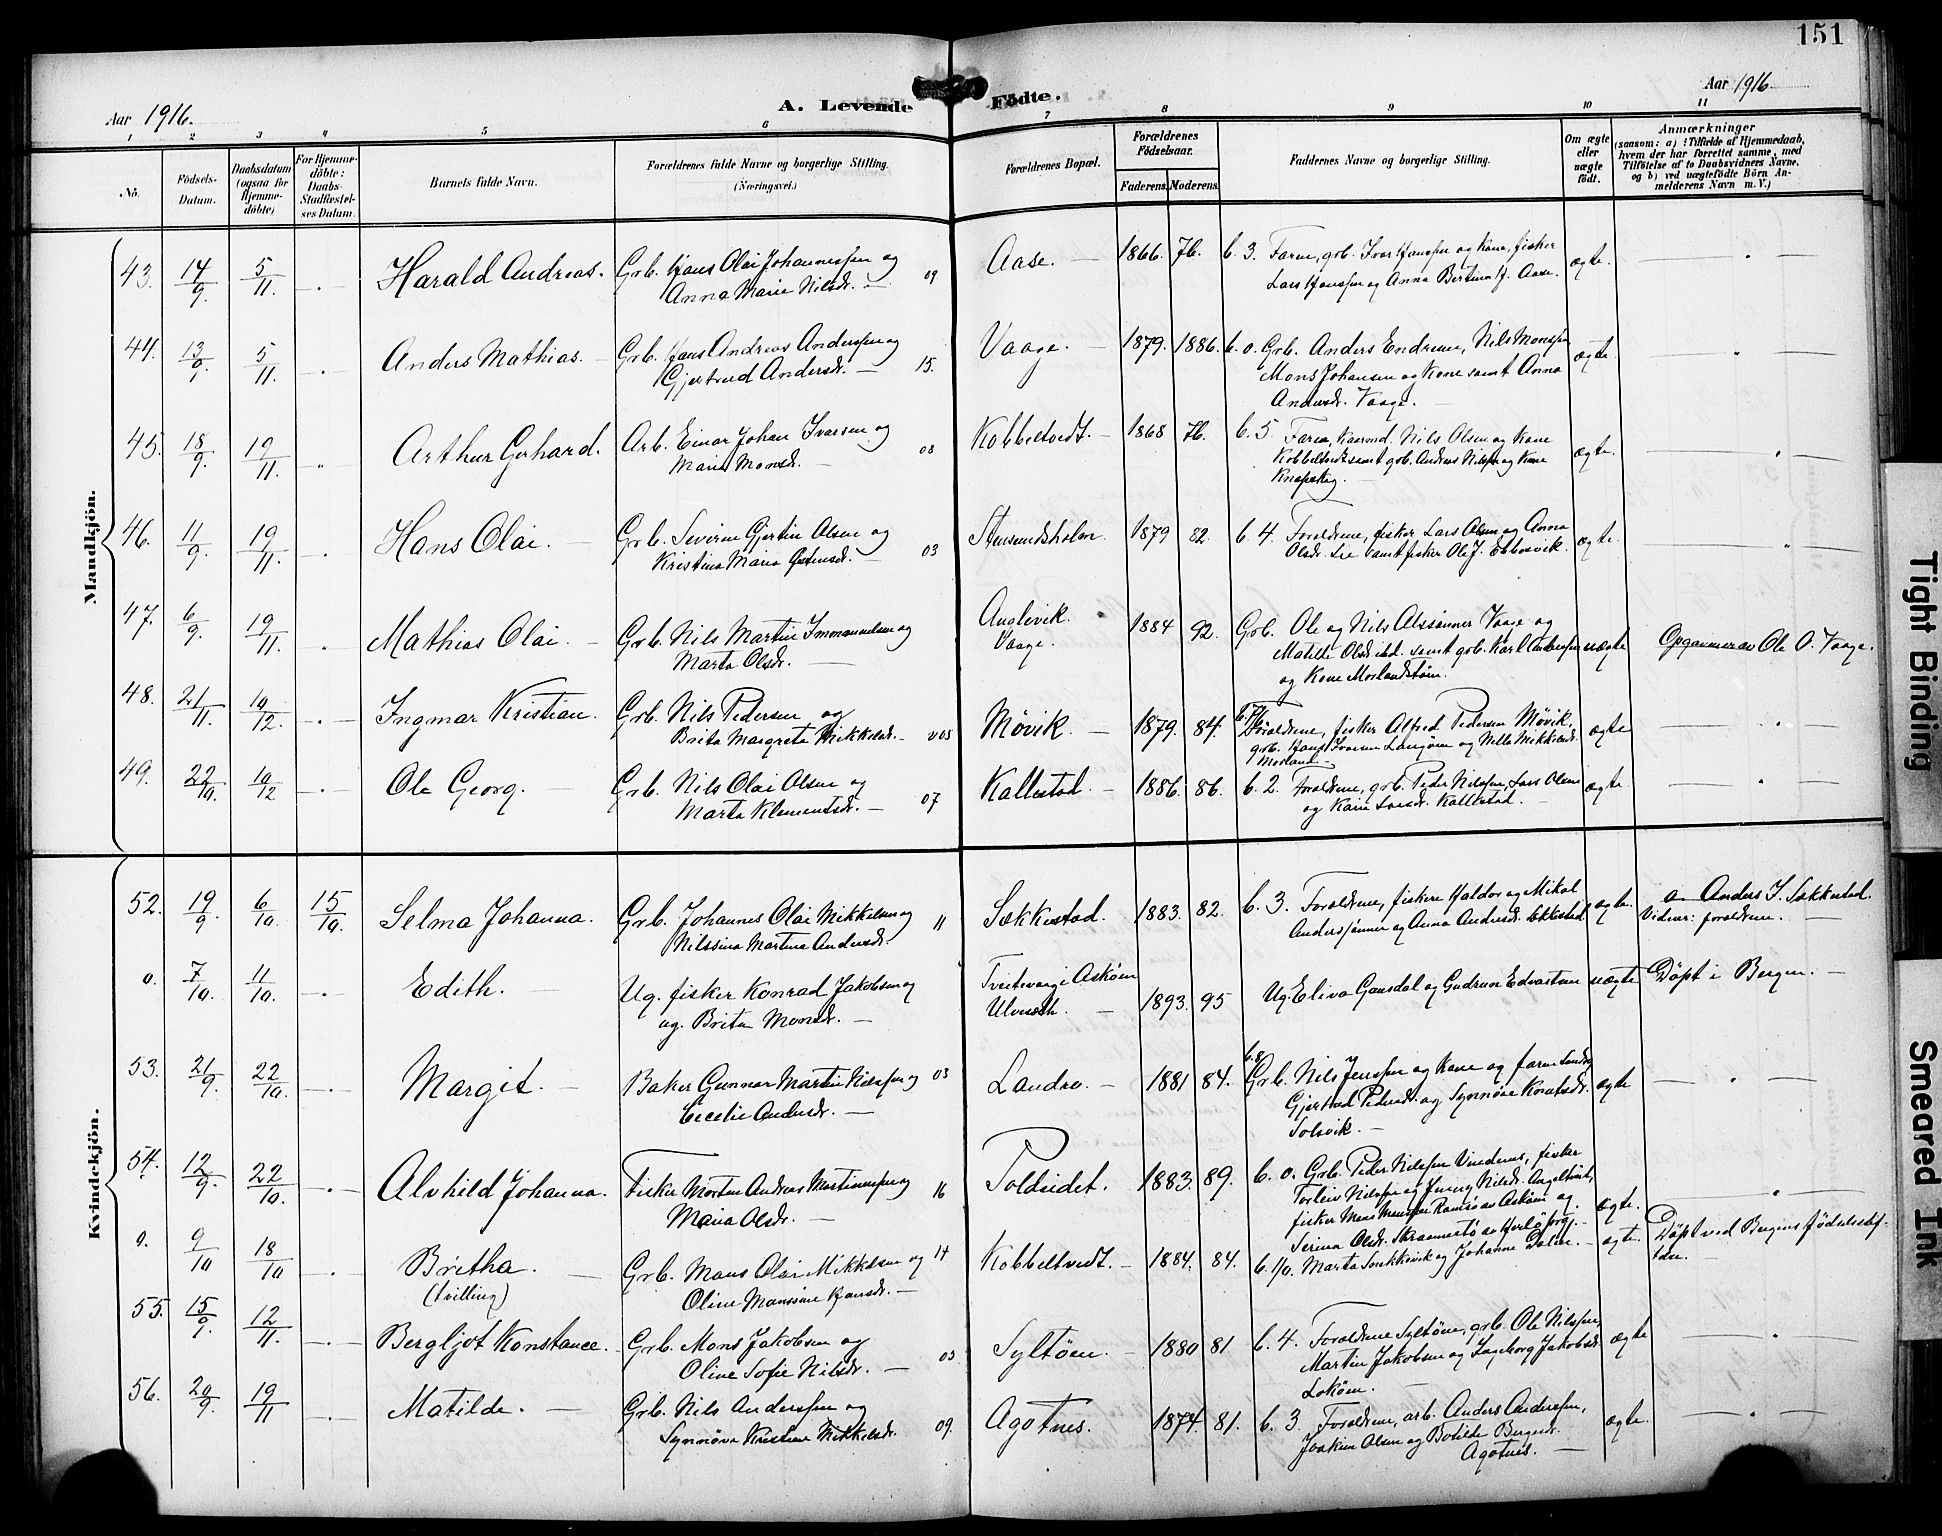 151
Aar 1916.
A. Levende
Födte.
Aar 1916
1 2 3 4 5 6 7 8 9 10 11
No.
Födsels-
Datum.
Daabsdatum
(ogsaa for
Hjemme-
döbte)
For Hjemme-
döbte:
Daabs-
Stadfæstel-
ses Datum.
Barnets fulde Navn.
Forældrenes fulde Navne og borgerlige Stilling.
(Næringsvei.)
Forældrenes Bopæl.
Forældrenes
Födselsaar.
Faderens. Moderens.
Faddernes Navne og borgerlige Stilling.
Om ægte
eller
uægte
födt.
Anmærkninger
(saasom: a) i Tilfælde af Hjemmedaab,
hvem der har forrettet samme, med
Tilföielse af to Daabsvidners Navne,
og b) ved uægtefödte Börn An-
melderens Navn m. V.)
Mandkjön.
43. 14/9 5/11. Harald Andreas. Grb. Hans Olai Johannessen og
Anna Marie Nilsdr. 09
Aase. 1866. 76. b. 3. Faren, grb. Ivar Hanssen og Kone, fisker
Lars Hanssen og Anna Bertina H. Aase. ægte.
44. 13/9 5/11. Anders Mathias. Grb. Hans Andreas Anderssen og
Gjertrud Andersdr. 15.
Vaage. 1879. 1886. b. 0. Grb. Anders Endresen, Nils Monssen
Mons Johansen og Kone samt Anna
Andersdr. Vaage. ægte.
45. 18/9. 19/11. Arthur Gerhard. Arb. Einar Johan Ivarsen og
Maria Monsdr. 08
Kobbeltvedt. 1868 76. b. 5 Faren, Nils Olsen og Kone
Kobbeltvedt samt grb. Andreas Nilssen og Kone
ægte.
46. 11/9. 19/11. Hans Olai. Grb. Severin Gjertin Olsen og
Kristina Maria 03
1879 82. b. 4. Forældrene, fisker Lars Olsen og Anna
Olsdr. Lie samt fisker Ole J. Ebbesvik. ægte.
47. 6/9. 19/11. Mathias Olai. Grb. Nils Martin Immanuelsen og
Marta Olsdr.
Anglevik.
Vaage. 1884 92. Grb. Ole og Nils Olssønner Vaage og
Matilde Olsdr. ibd. samt grb. Karl Anderssen
og Kone Morlandstøen. uægte Opgavneren Ole O. Vaage.
48. 21/11. 10/12. Ingmar Kristian. Grb. Nils Pedersen og
Brita Margreta Mikkelsdr.
Møvik. 1879. 84. Forældrene, fisker Alfred Pedersen Møvik,
grb. Hans Ivarsen Langøen og Nilla Mikkelsdr.
Morland. ægte
49. 22/10. 10/12 Ole Georg. Grb. Nils Olai Olsen og
Marta Klementsdr. 07
Kallestad. 1886. 86. b. 2. Forældrene, grb. Peder Nilssen, Lars Olsen
og Kari Larsdr. Kallestad. ægte.
Kvindekjön.
52. 19/9 6/10. 15/10. Selma Johanna. Grb. Johannes Olai Mikkelsen og
Nilssina Martina Andersdr. 11
Sækkestad. 1883. 82. b. 3. Forældrene, fiskere Haldor og Mikal
Anderssønner og Anna Andersdr. Sekkestad ægte. a. Anders J. Sækkestad.
Vidner: forældrene.
0. 7/10. 11/10. Edith. Ug. fisker Konrad Jakobsen og
ug. Brita Monsdr.
Tveitevaag i Askøen
1893. 95 Ug. Eliva Gausdal og Gudrun Edvartsen uægte Döpt i Bergen.
53. 21/9. 22/10. Margit. Baker Gunnar Martin Nilssen og 03
Cecelie Andersdr.
Landro. 1881 84. b. 8 Grb. Nils Jenssen og Kone og faren Landro
Gjertrud Pedersdr. og Synnøve Knutsdr.
Solsvik. ægte
54. 12/9. 22/10. Alvhild Johanna. Fisker Morten Andreas Martinussen og 16
Maria Olsdr.
Toldsidet. 1883. 89. b. 0. Grb. Peder Nilssen Vindenes, fisker
Torleiv Nilssen og Jenny Nilsdr. Angeltveit,
fisker Mons Monssen Ramsø av Askøen og
Serina Olsdr. Skrammestø av Herlø prg. ægte.
0. 9/10 18/10 Britha.
(tvilling) Grb. Mons Olai Mikkelsen og 14
Oline Monssine Hansdr.
Kobbeltvedt. 1884. 84. b. 1/0. Marta Snekkevik og Johanne Dalen. ægte. Döpt ved Bergens fødselsstif-
telse.
55. 15/9. 12/11. Bergljot Konstance. Grb. Mons Jakobsen og
Oline Sofie Nilsdr. 03
Syltøen. 1880 81. b. 4. Forældrene Syltøen, grb. Ole Nilssen,
Martin Jakobsen og Ingeborg Jakobsdr.
Lokøen. ægte
56. 20/9. 19/11 Matilde. Grb. Nils Anderssen og
Synnøva Kristine Mikkelsdr. 09.
Agotnes. 1874. 81. b. 3. Forældrene, arb. Anders Anderssen,
Joakim Olsen og Botilde Bergesdr.
Agotnes. ægte.
Tight Binding
Smeared Ink